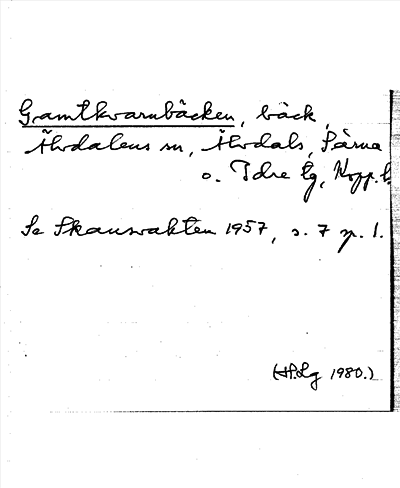 Gamtkvarnbäcken, bäck,
Älvdalens sn, Älvdals, Särna
o. Idre tg, Kopp. l.
Se Skansvakten 1957, s. 7 sp. 1.
(Hj.Lg 1980.)